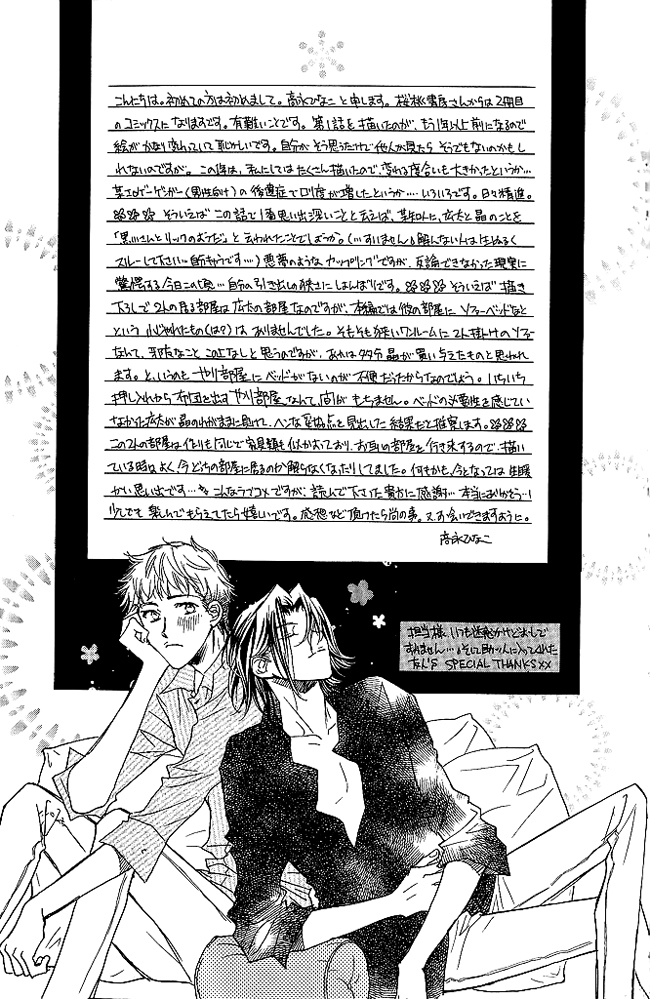 こんにちは。初めての方は初めまして。高永ひなこと申します。桜桃書房さんからは2冊目
のコミックスになりますです。有難いことです。第1話を描いたのが、もう1年以上前になるので
絵がかなり変わっていて恥かしいです。自分がそう思うだけで他人が見たらそうでもないのかもし
れないのですが。この1年は、私にしてはたくさん描いたので、変わる度合いも大きかったというか…
某エロゲーゲンガー(男性向け)の後遺症で口度が増したというか…いろいろです。日々精進。
そういえばこの話で1番思い出深いことと云えば、某知人に、広大と晶のことを
「黒川さんとリックのようだ」と云われたことでしょうか。(…すいません。解んない人は生ぬるく
スルーして下さい…自分もうです…)悪夢のようなカップリングですが、反論できなかった現実に
驚愕する今日この頃…自分の引き出しの狭さにしょんぼりです。そういえば描き
下ろしで2人の居る部屋は広大の部屋なのですが、本編では彼の部屋にソファーベッドなど
という小洒落たもの(は?)はありませんでした。そもそも狭いワンルームに2人掛けのソファ
なんて、邪魔なことこの上なしと思うのですが、あれは多分晶が買い与えたものと思われ
ます。というのもヤリ部屋にベッドがないのが不便だったからなのでしょう。いちいち
押し入れから布団を出すヤリ部屋なんて、間がもちません。ベッドの必要性を感じてい
なかった広大が晶のわがままに負けて、ヘンな妥協点を見出した結果だと推察します。
この2人の部屋は作りも同じで家具類も似かよっており、お互いの部屋を行き来するので、描い
ている時はよく今どっちの部屋に居るのか解らなくなったりしてました。何もかも、今となっては生暖
かい思い出です…。こんなラブコメですが、読んで下さった貴方に感謝…本当にありがとう…!
少しでも楽しんでもらえてたら嬉しいです。感想など頂けたら尚の事。又お会いできますように。
高永ひなこ
担当様、いつも迷惑かけどおしで
すみません…。そして助っ人に入ってくれた
友人's SPECIAL THANKS××